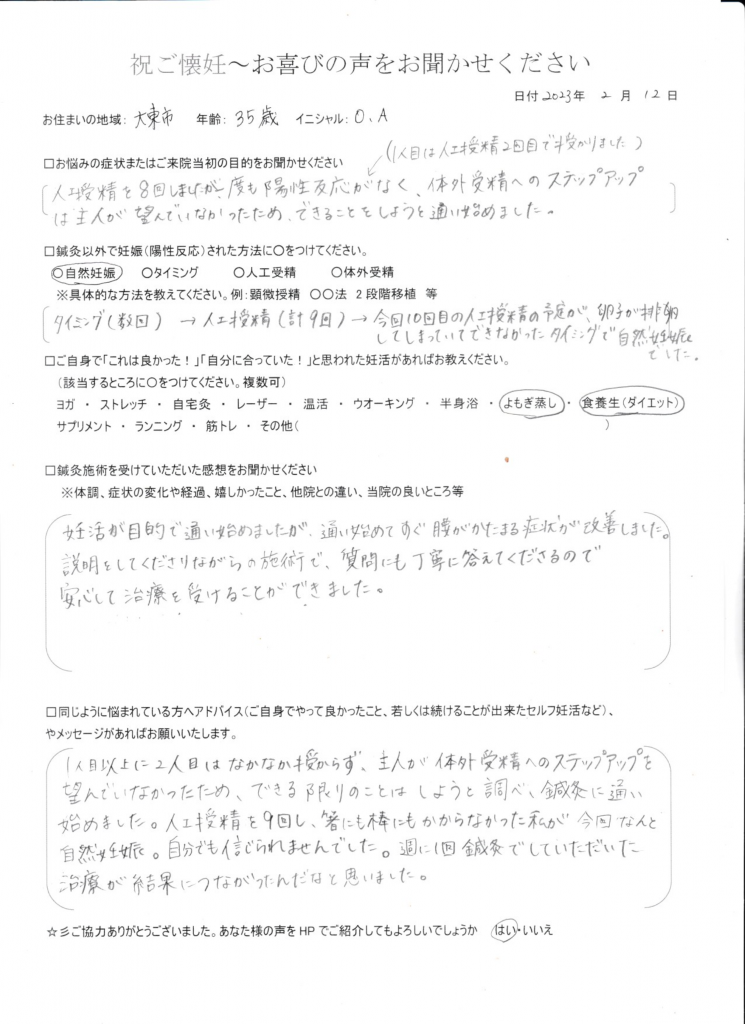 祝ご懐妊～お喜びの声をお聞かせください
日付 2023年 2 月 12 日
お住まいの地域: 大東市 年齢: 35歳 イニシャル: O.A
(1人目は人工授精2回目で授かりました)
□お悩みの症状またはご来院当初の目的をお聞かせください
人工授精を8回しましたが、度も陽性反応がなく、体外受精へのステップアップ
は主人が望んでいなかったため、できることをしようと通い始めました。
□鍼灸以外で妊娠(陽性反応)された方法に○をつけてください。
○自然妊娠 ○タイミング ○人工受精 ○体外受精
※具体的な方法を教えてください。例:顕微授精 ○○法 2段階移植 等
タイミング(数回) → 人工授精(計9回) → 今回10回目の人工授精の予定が、卵子が排卵
してしまっていてできなかったタイミングで自然妊娠
でした。
□ご自身で「これは良かった！」「自分に合っていた！」と思われた妊活があればお教えください。
(該当するところに○をつけてください。複数可)
ヨガ ・ ストレッチ ・ 自宅灸 ・ レーザー ・ 温活 ・ ウオーキング ・ 半身浴 ・ よもぎ蒸し ・ 食養生(ダイエット)
サプリメント ・ ランニング ・ 筋トレ ・ その他( )
□鍼灸施術を受けていただいた感想をお聞かせください
※体調、症状の変化や経過、嬉しかったこと、他院との違い、当院の良いところ等
妊活が目的で通い始めましたが、通い始めてすぐ腰がかたまる症状が改善しました。
説明をしてくださりながらの施術で、質問にも丁寧に答えてくださるので
安心して治療を受けることができました。
□同じように悩まれている方へアドバイス(ご自身でやって良かったこと、若しくは続けることが出来たセルフ妊活など)、
やメッセージがあればお願いいたします。
1人目以上に2人目はなかなか授からず、主人が体外受精へのステップアップを
望んでいなかったため、できる限りのことはしようと調べ、鍼灸に通い
始めました。人工授精を9回し、箸にも棒にもかからなかった私が今回なんと
自然妊娠。自分でも信じられませんでした。週に1回鍼灸でしていただいた
治療が結果につながったんだなと思いました。
☆彡ご協力ありがとうございました。あなた様の声をHPでご紹介してもよろしいでしょうか はい・いいえ